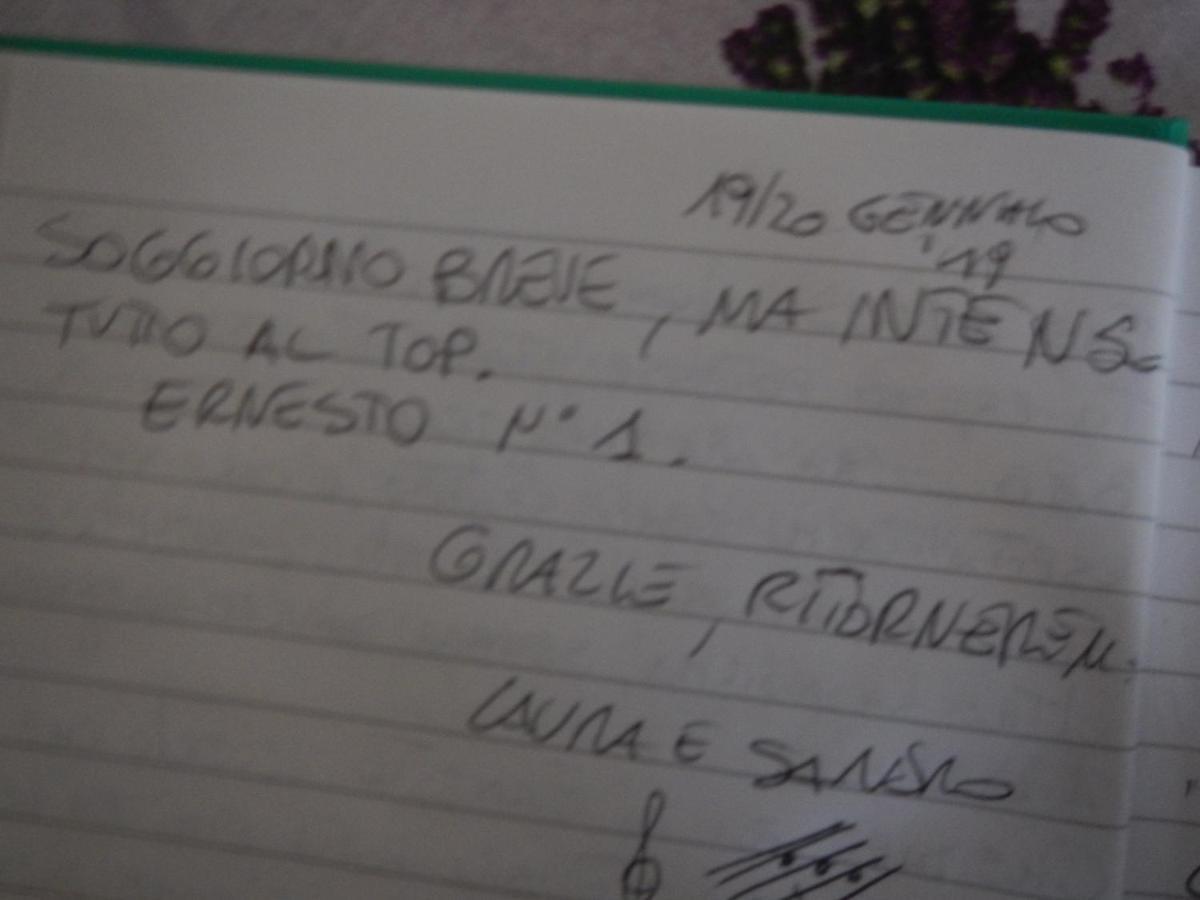 19/20 GENNAIO
'19
SOGGIORNO BREVE, MA INTENSO
TUTTO AL TOP.
ERNESTO N° 1.
GRAZIE, RITORNEREM.
LAURA E SANDRO